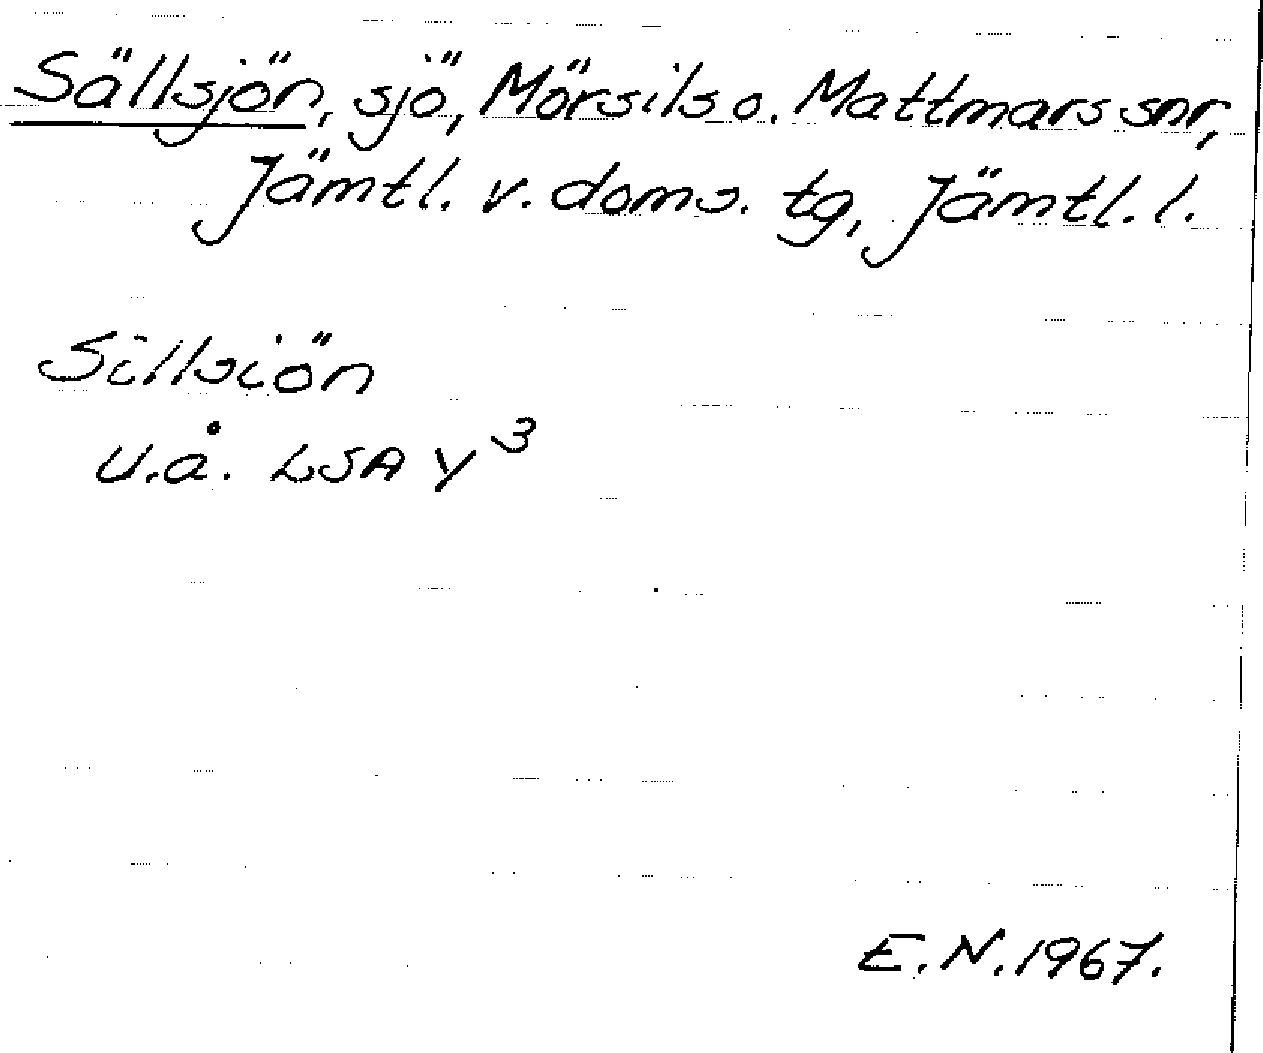 Sällsjön, sjö, Mörsils o. Mattmars snr,
Jämtl. v. doms. tg, Jämtl. l.
Sillsiön
u.å. LSA Y3
E.N. 1967.